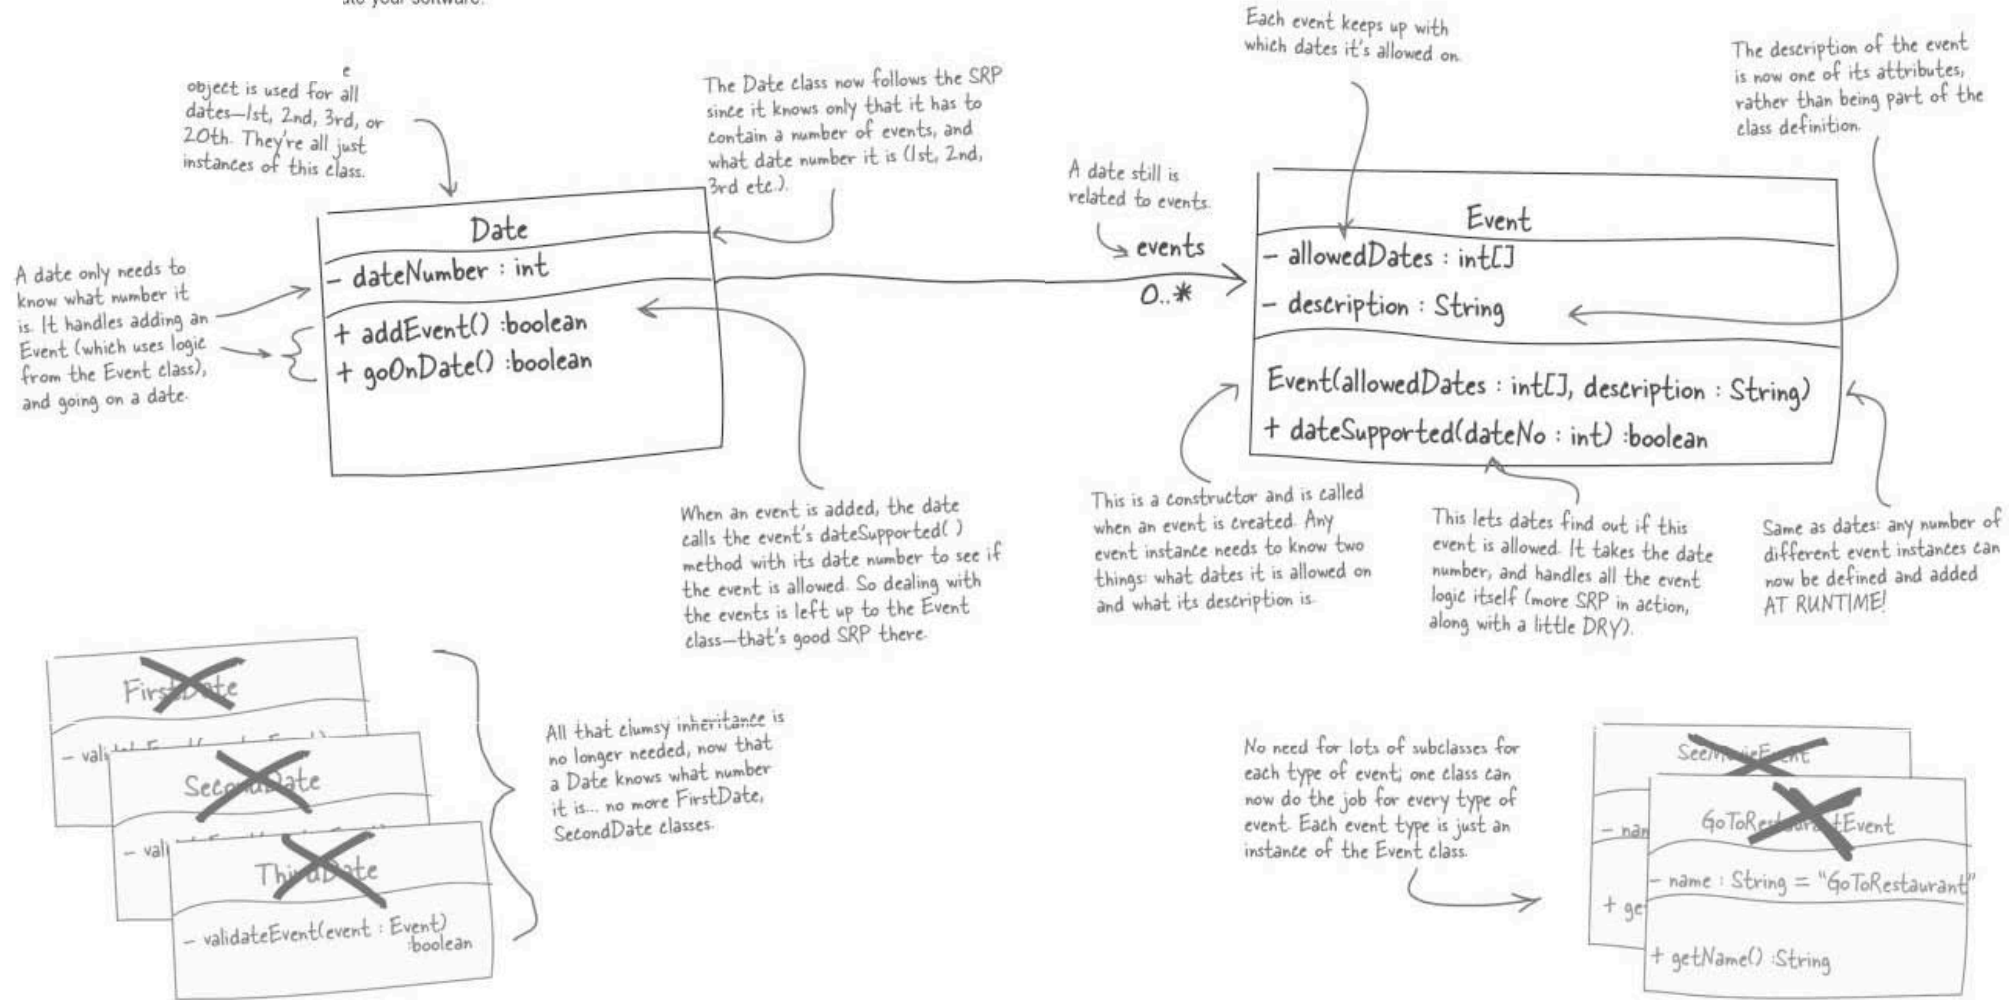 your software.
object is used for all
dates—1st, 2nd, 3rd, or
20th. They're all just
instances of this class.
The Date class now follows the SRP
since it knows only that it has to
contain a number of events, and
what date number it is (1st, 2nd,
3rd etc.).
Each event keeps up with
which dates it's allowed on.
The description of the event
is now one of its attributes,
rather than being part of the
class definition.
A date still is
related to events.
A date only needs to
know what number it
is. It handles adding an
Event (which uses logic
from the Event class),
and going on a date.
Date
- dateNumber : int
+ addEvent() :boolean
+ goOnDate() :boolean
events
0..*
Event
- allowedDates : int[]
- description : String
Event(allowedDates : int[], description : String)
+ dateSupported(dateNo : int) :boolean
When an event is added, the date
calls the event's dateSupported( )
method with its date number to see if
the event is allowed. So dealing with
the events is left up to the Event
class—that's good SRP there.
This is a constructor and is called
when an event is created. Any
event instance needs to know two
things: what dates it is allowed on
and what its description is.
This lets dates find out if this
event is allowed. It takes the date
number, and handles all the event
logic itself (more SRP in action,
along with a little DRY).
Same as dates: any number of
different event instances can
now be defined and added
AT RUNTIME!
FirstDate
SecondDate
ThirdDate
- validateEvent(event : Event)
:boolean
All that clumsy inheritance is
no longer needed, now that
a Date knows what number
it is... no more FirstDate,
SecondDate classes.
No need for lots of subclasses for
each type of event; one class can
now do the job for every type of
event. Each event type is just an
instance of the Event class.
SeeMovieEvent
GoToRestaurantEvent
- name : String = "GoToRestaurant"
+ getName() :String